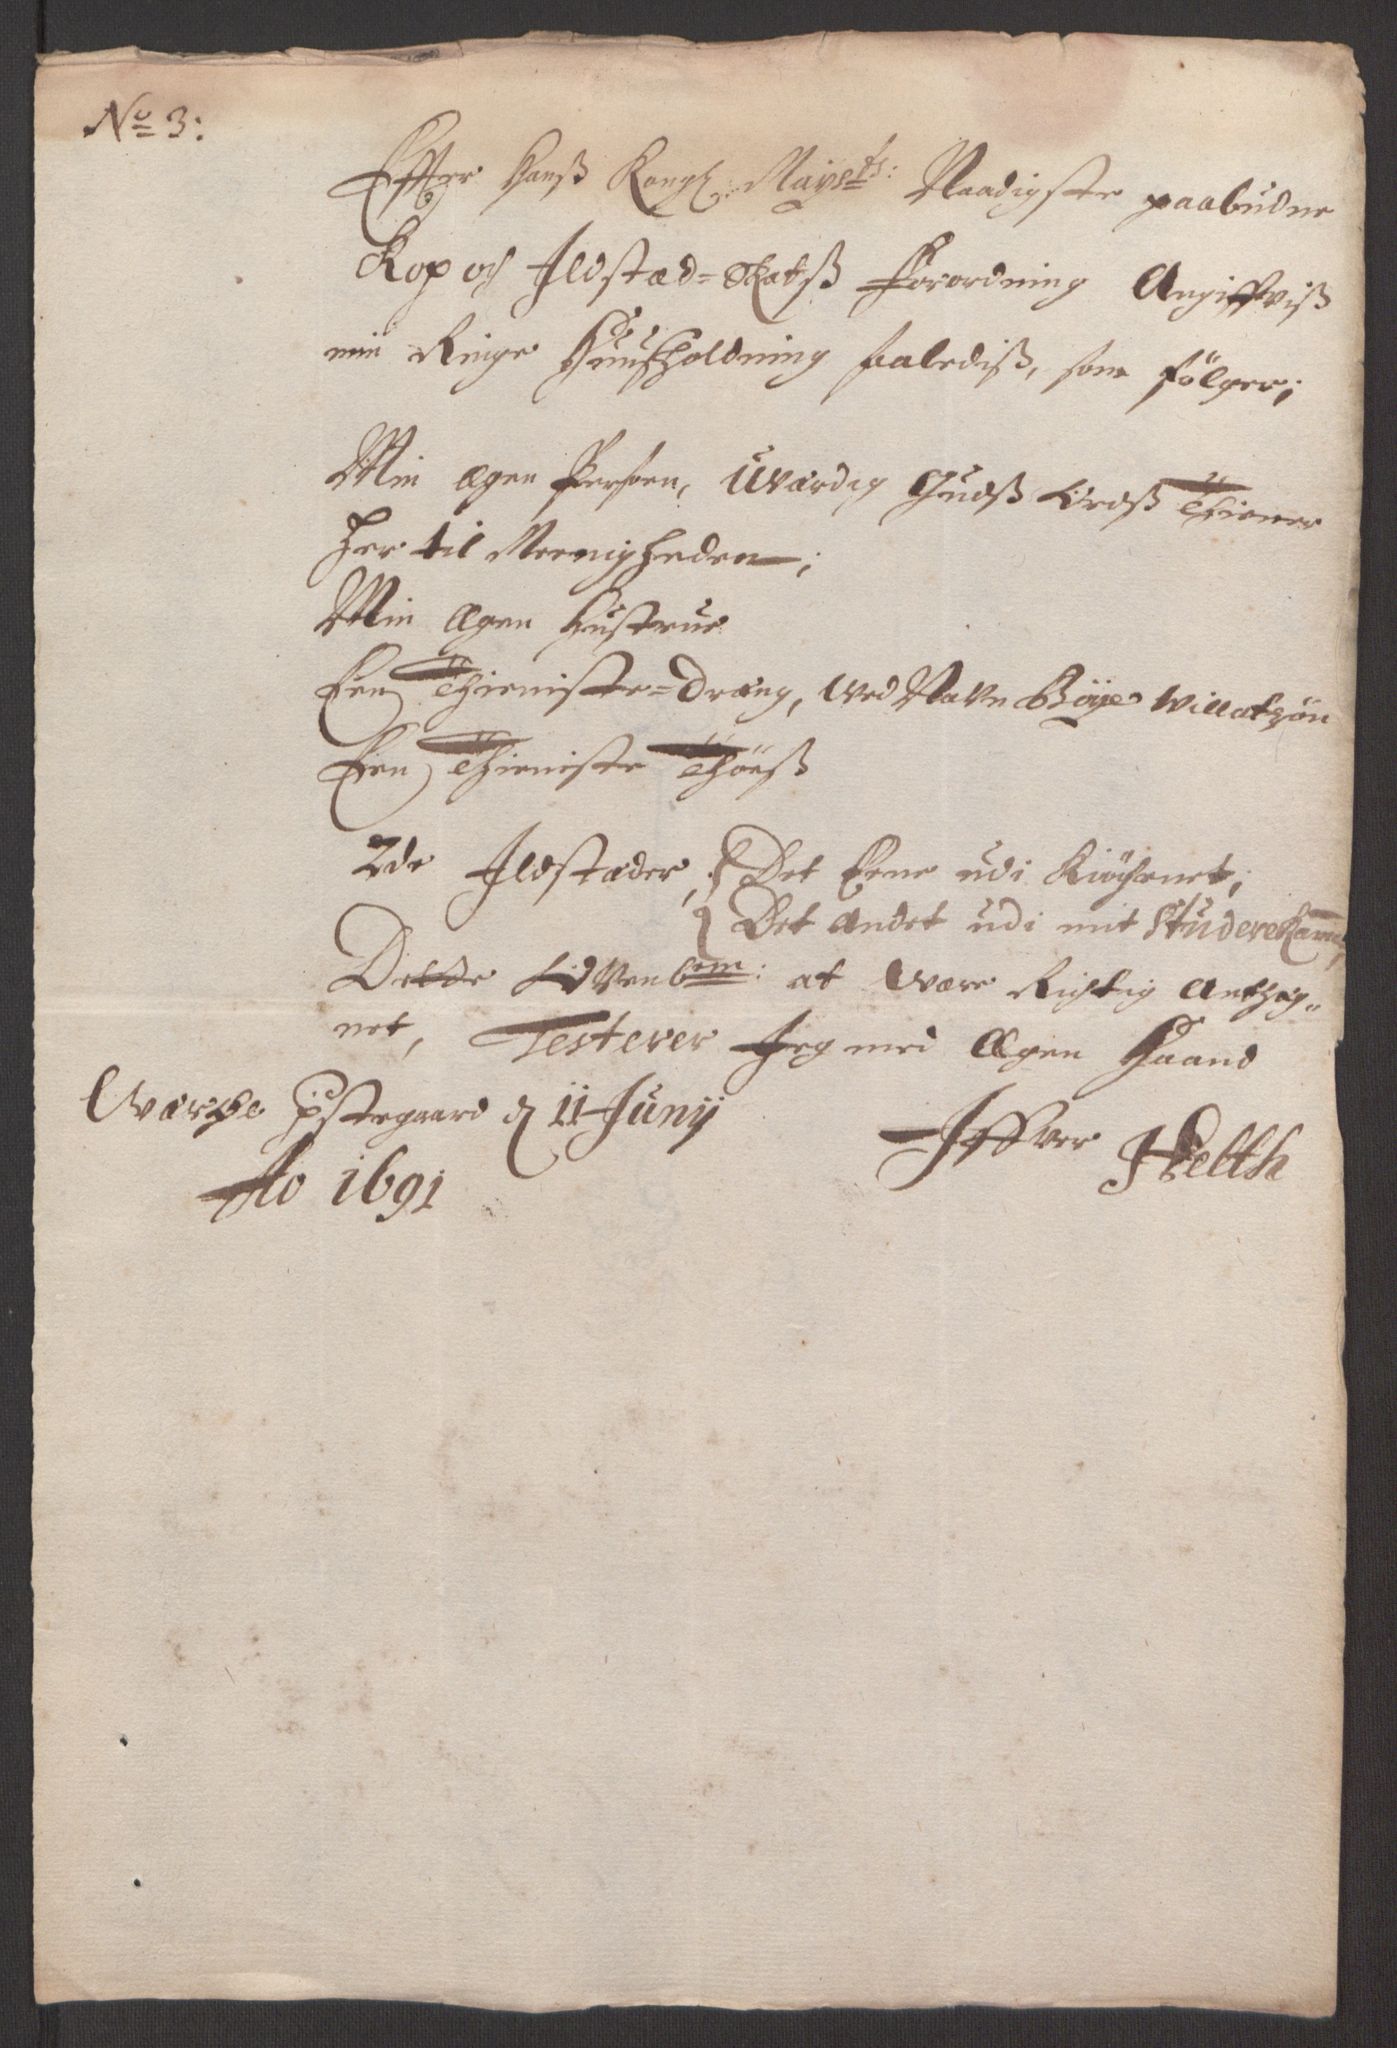 No 3:
Effter Hanß Kongl. Mayst:ts: Naadigste paabudne
Kop och Ildstæd-Skatß Forordning Angiffviß
min Ringe Huußholdning saalediß, som fölger;
Min Ægen Persoen, Uværdig Gudß Ordß Thiener
her til Meenigheden;
Min Ægen Hustrue
Een Thieniste-Dreng, ved Navn Böÿe Willatzön
Een Thieniste Thöeß
2de Ildstæder, Det Eene udi Kiöchenet;
Det Andet udi mit Studerekam̅er,
Dette at Være Richtig Anteg-
net, Testerer Jeg med Ægen Haand
Præstegaard d 11 Junij
Iffver Hielth
Ao 1691